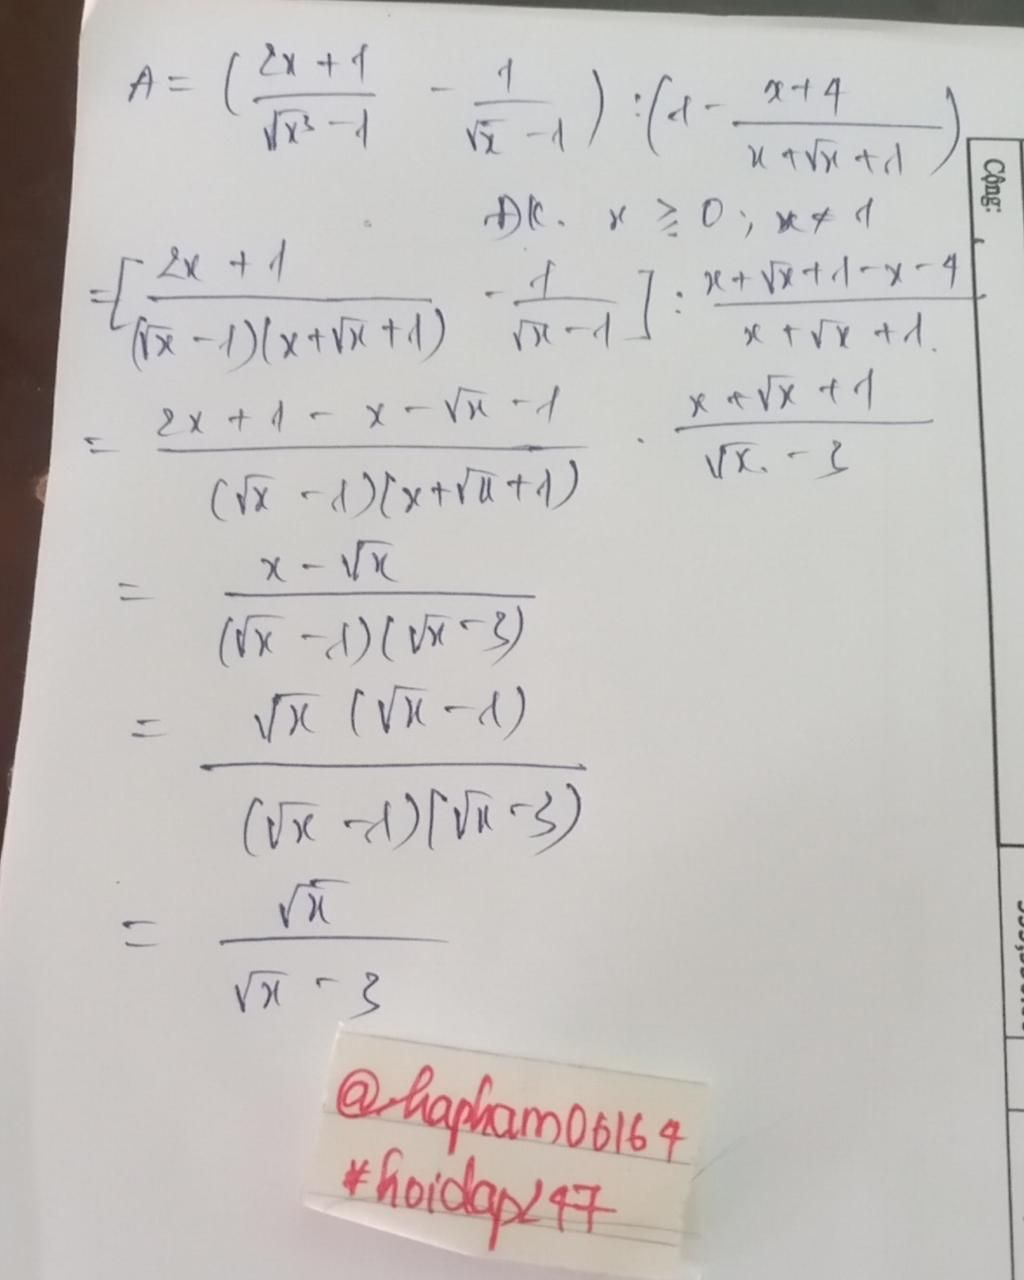 A = ( (2x + 1)/(√x³ - 1) - 1/(√x - 1) ) : (1 - (x + 4)/(x + √x + 1))
ĐK. x ≥ 0; x ≠ 1
= [ (2x + 1)/((√x - 1)(x + √x + 1)) - 1/(√x - 1) ] : (x + √x + 1 - x - 4)/(x + √x + 1).
= (2x + 1 - x - √x - 1)/((√x - 1)(x + √x + 1)) . (x + √x + 1)/(√x - 3)
= (x - √x)/((√x - 1)(√x - 3))
= (√x (√x - 1))/((√x - 1)(√x - 3))
= √x/(√x - 3)
@hapham06164
#hoidap247
Cộng: